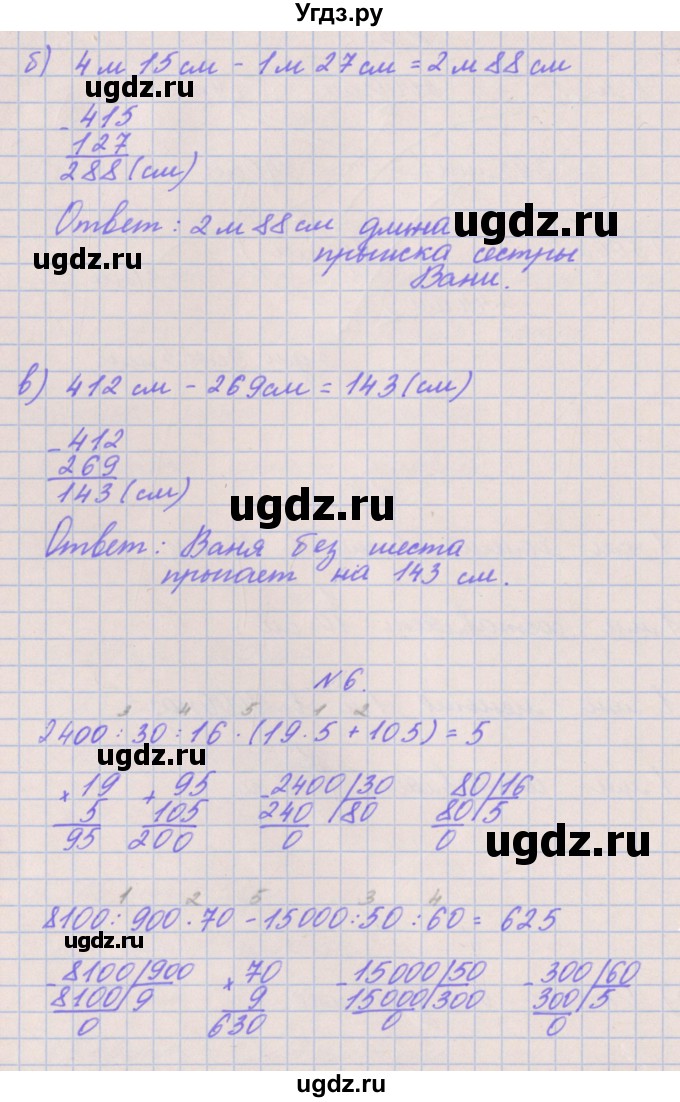 Угдз.ру
б) 4 м 15 см - 1 м 27 см = 2 м 88 см
ugdz.ru
- 415
127
288 (см)
Ответ: 2 м 88 см длина
ugdz.ru
прыжка сестры
ugdz.ru
Вани.
в) 412 см - 269 см = 143 (см)
- 412
269
143 (см)
ugdz.ru
Ответ: Ваня без шеста
прыгает на 143 см.
N 6.
3 4 5 1 2
2400 : 30 : 16 · (19 · 5 + 105) = 5
ugdz.ru
× 19 + 95 - 2400 | 30 80 | 16
5 105 240 | 80 80 | 5
95 200 0 0
ugdz.ru
1 2 5 3 4
8100 : 900 · 70 - 15000 : 50 : 60 = 625
ugdz.ru
- 8100 | 900 × 70 - 15000 | 50 - 300 | 60
8100 | 9 9 15000 | 300 300 | 5
0 630 0 0
ugdz.ru